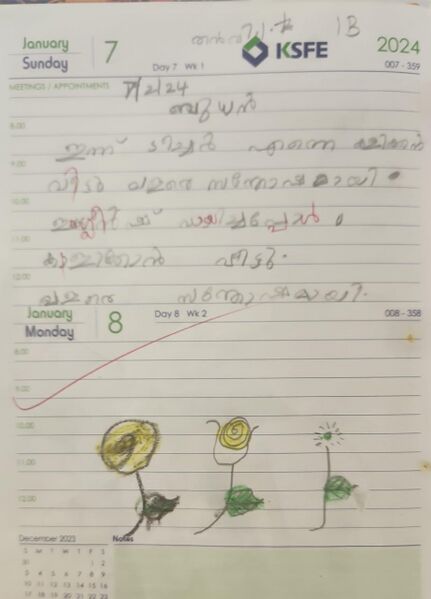 January
Sunday
7
Day 7 Wk 1
KSFE
1B
2024
007 - 359
MEETINGS / APPOINTMENTS
7/2/24
ബുധൻ
8.00
ഇന്ന് ടീച്ചർ എന്നെ കളിക്കാൻ
9.00
വിട്ടു വളരെ സന്തോഷമായി
10.00
11.00
കളിക്കാൻ വിട്ടു.
12.00
വളരെ സന്തോഷമായി.
January
Monday
8
Day 8 Wk 2
008 - 358
8.00
9.00
10.00
11.00
12.00
December 2023
Notes
S M T W T F S
31 1 2
3 4 5 6 7 8 9
10 11 12 13 14 15 16
17 18 19 20 21 22 23